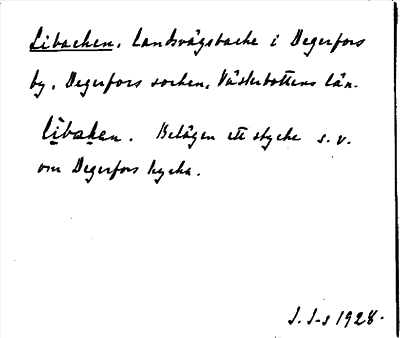 Libacken. Landsvägsbacke i Degerfors
by, Degerfors socken, Västerbottens län.
lìbakan. Belägen ett stycke s.v.
om Degerfors kyrka.
J. J-s 1928.